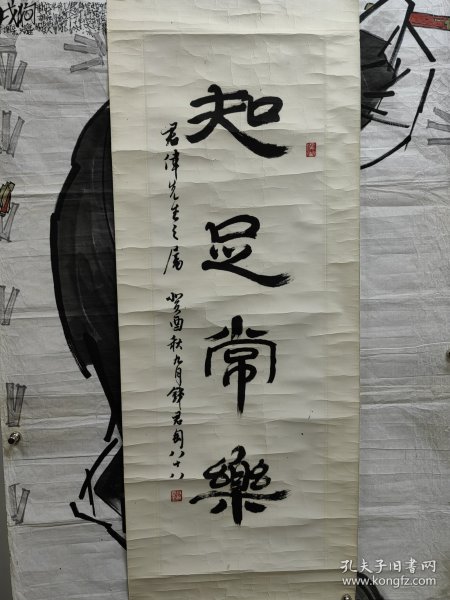 知足常樂
君偉先生之属
癸酉秋九月錢君匋八十八
孔夫子旧书网
www.kongfz.com